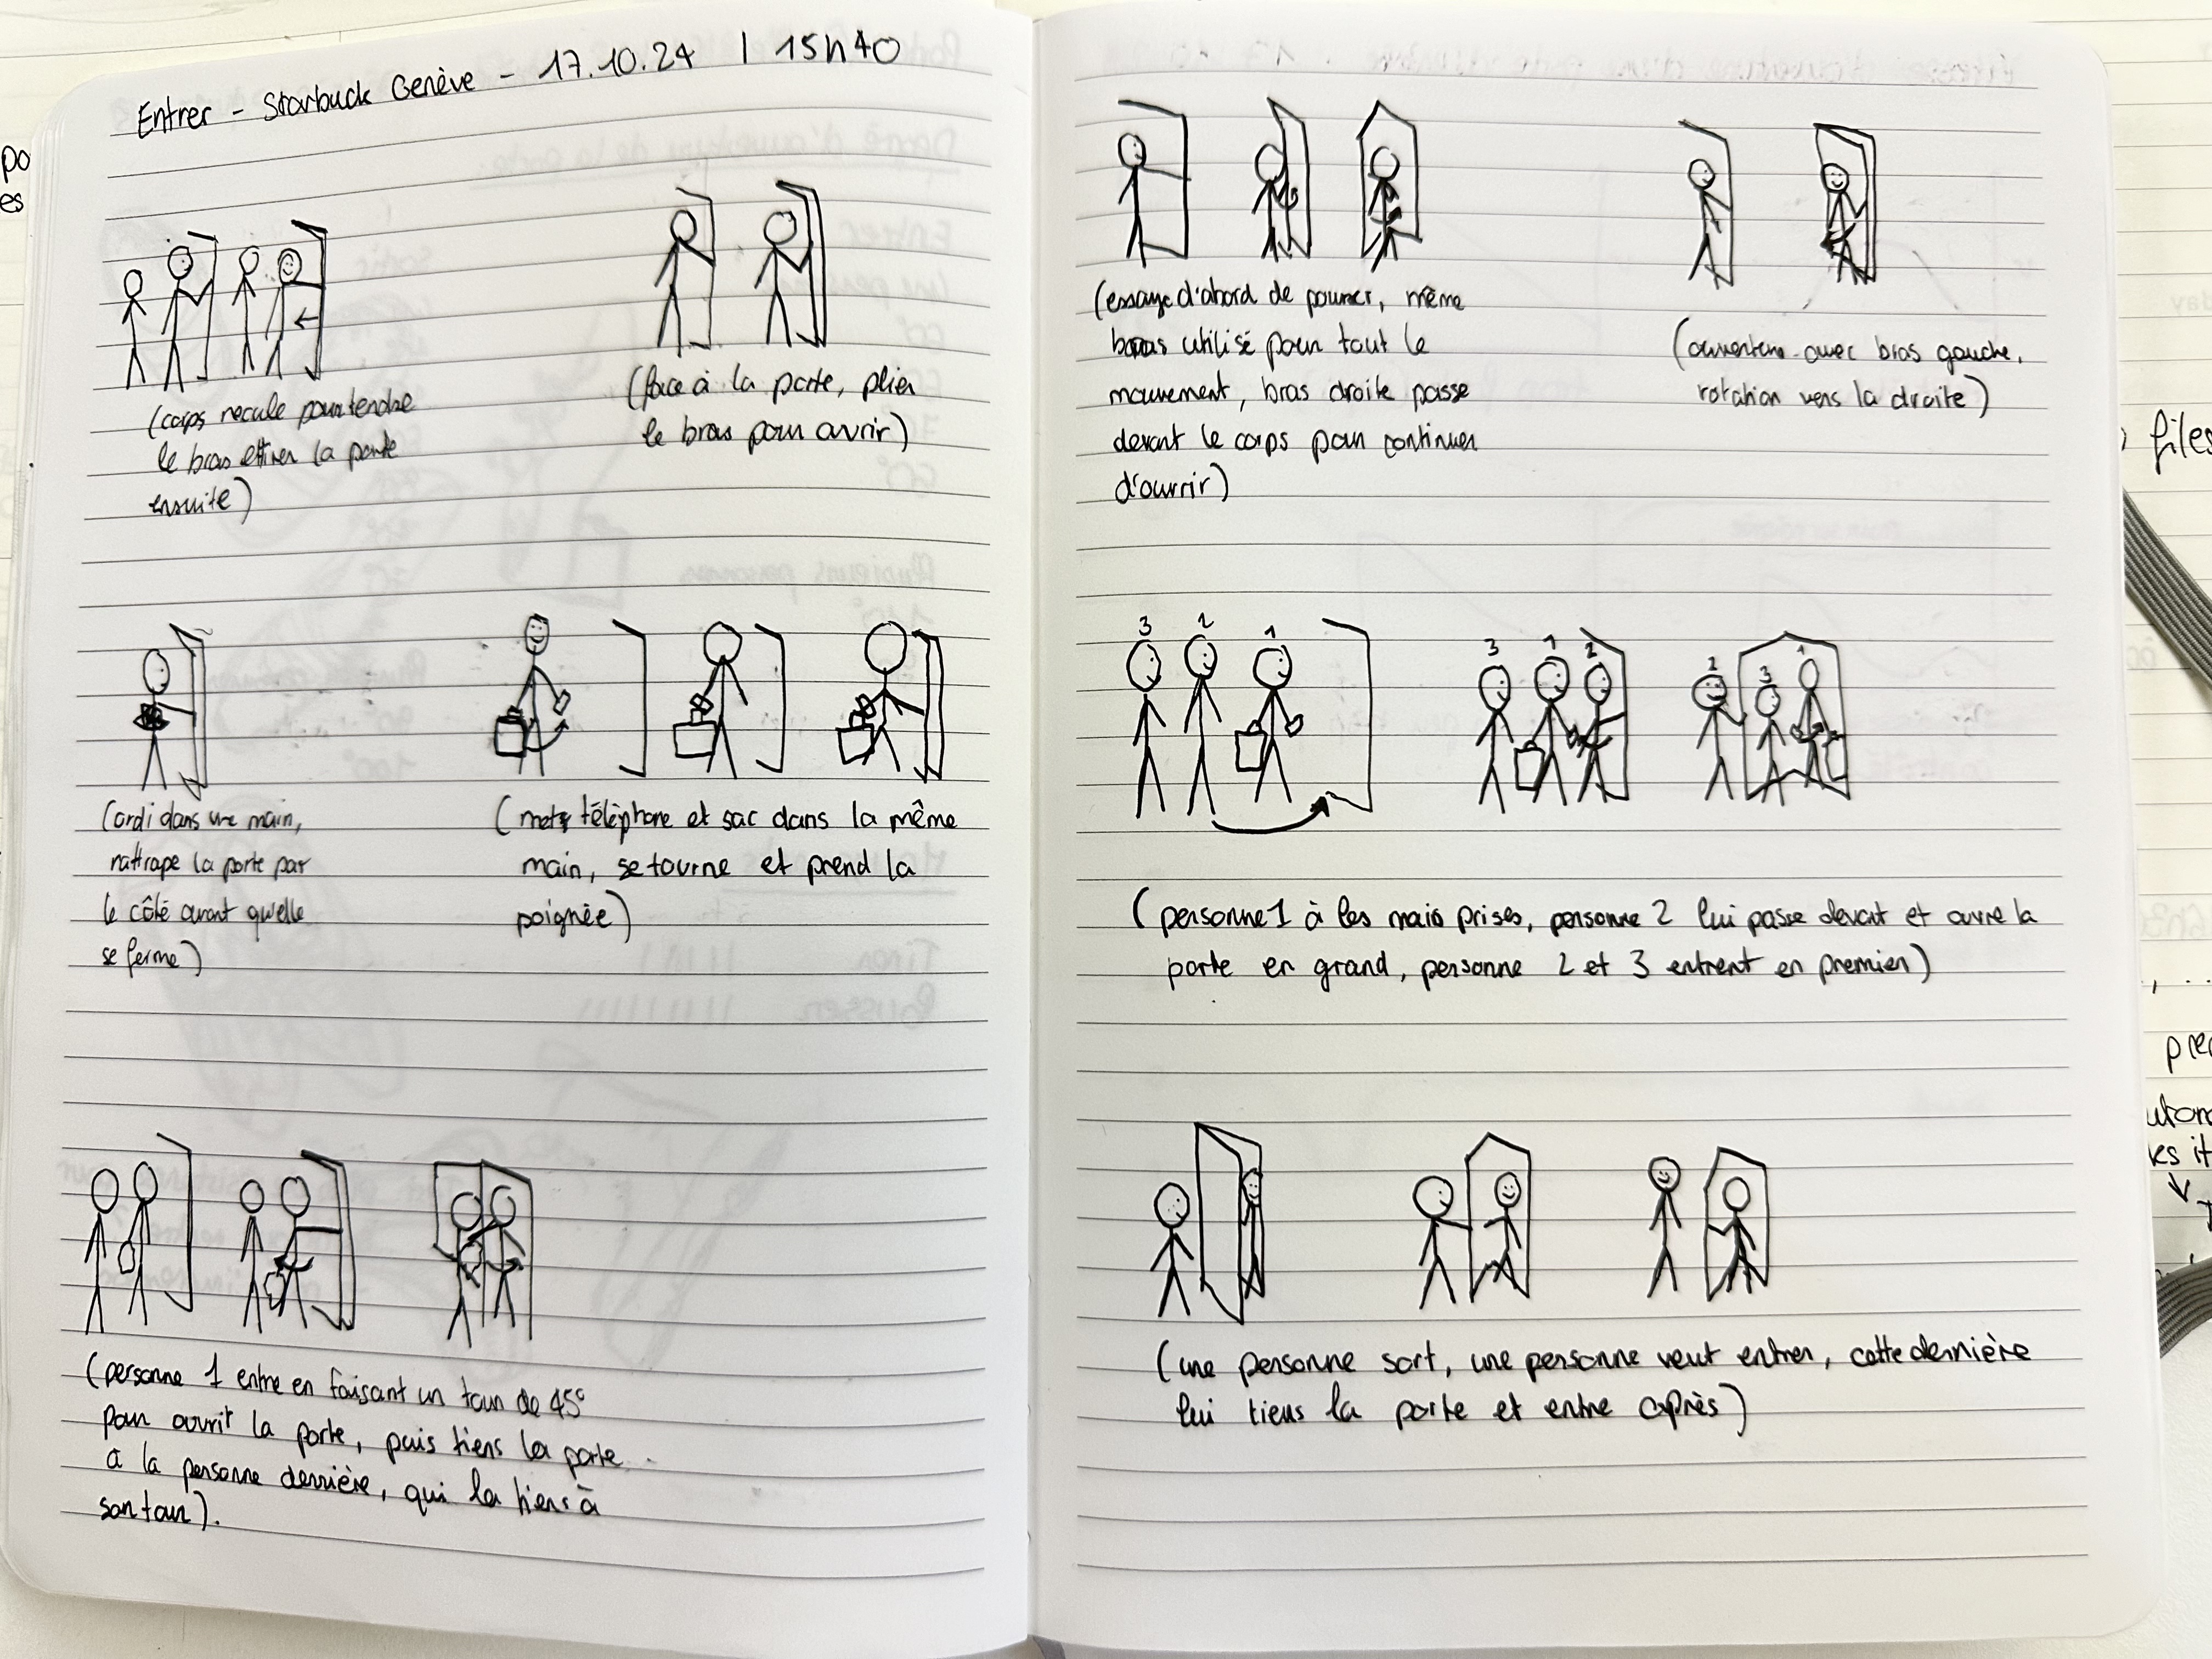 Entrer - Starbuck Genève - 17.10.24 | 15h40
(corps recule pour tendre
le bras et tirer la porte
ensuite)
(face à la porte, plier
le bras pour ouvrir)
(ordi dans une main,
rattrape la porte par
le côté avant qu'elle
se ferme)
(mets téléphone et sac dans la même
main, se tourne et prend la
poignée)
(personne 1 entre en faisant un tour de 45°
pour ouvrir la porte, puis tiens la porte
à la personne derrière, qui la tiens à
son tour).
(essaye d'abord de pousser, même
bras utilisé pour tout le
mouvement, bras droite passe
devant le corps pour continuer
d'ouvrir)
(ouverture avec bras gauche,
rotation vers la droite)
3 2 1
3 1 2
2 3 1
(personne 1 à les mais prises, personne 2 lui passe devant et ouvre la
porte en grand, personne 2 et 3 entrent en premier)
(une personne sort, une personne veut entrer, cette dernière
lui tiens la porte et entre après)
po
es
files